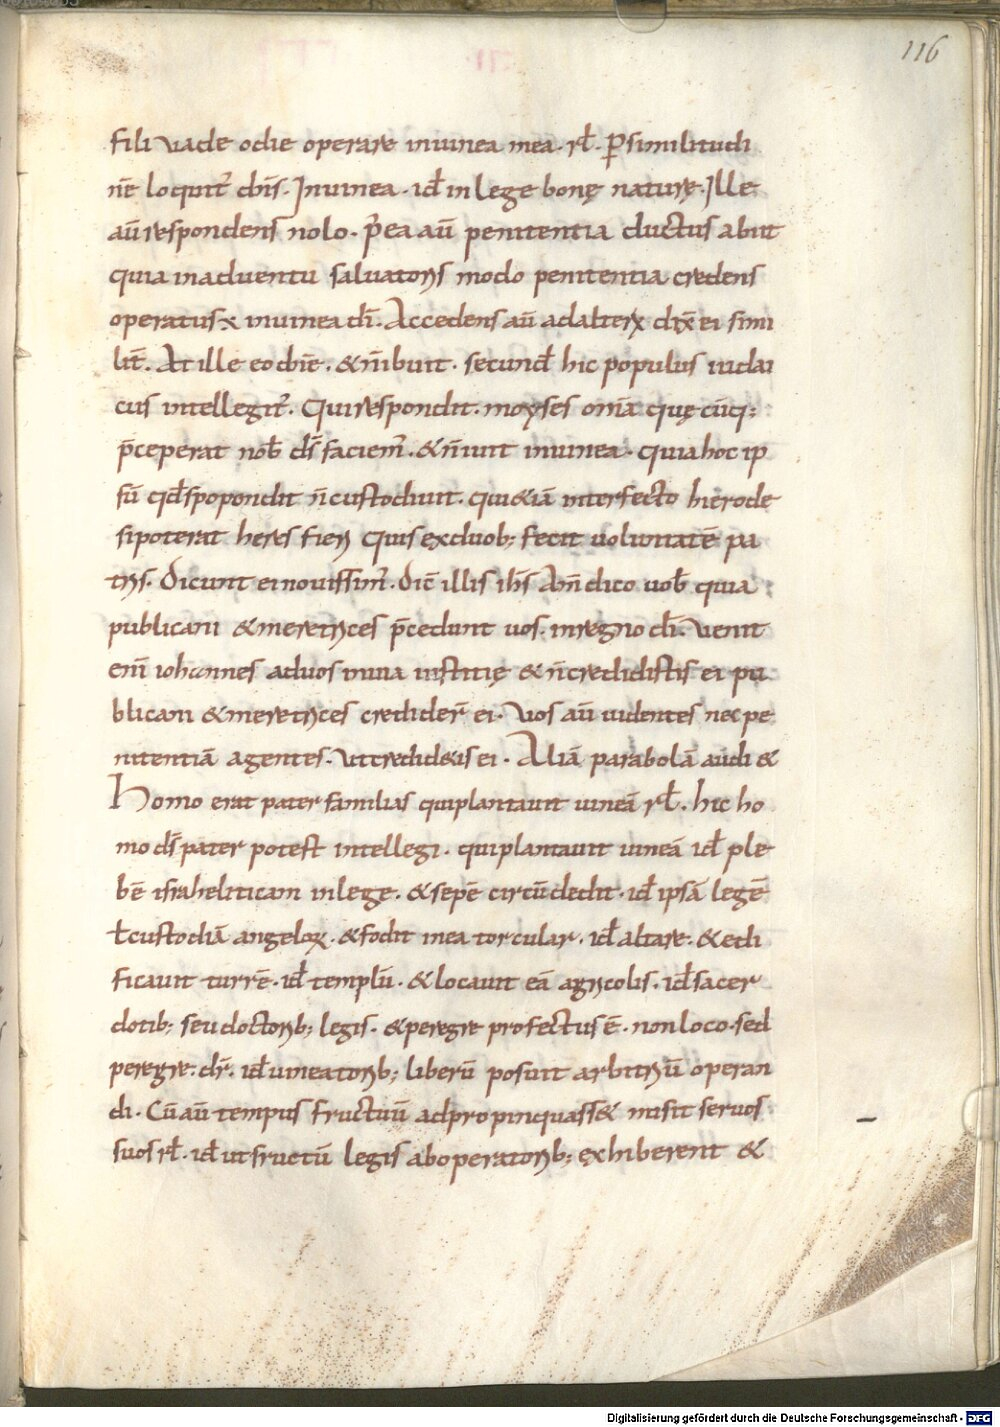 116
fili vade odie operare inuinea mea. rł. Psimilitudi
nē loquit̄ d̄n̄s. Inuinea. id̄ in lege bonę naturę. Ille
aū respondens nolo. P̄ea aū penitentia ductus abiit
quia inaduentu saluatoris modo penitentia credens
operatus x̄ inuinea d̄i. Accedens aū adalterꝝ dix̄ ei simi
lit̄. At ille eo dn̄e. & n̄ ibiuit. secund̄ hic populus iudai
cus intellegit̄. Qui respondit. moyses omīa quę cūq;
p̄ceperat nob̄ d̄s faciem̄. & n̄ iuit inuinea. quia hoc ip
sū qd̄ spopondit n̄ custodiuit. qui & iā interfecto hierode
si poterat heres fieri Quis ex duob; fecit uoluntatē pa
tris. Dicunt ei nouissim̄. Dic̄ illis ih̄s Am̄ dico uob̄ quia
publicani & meretrices p̄cedunt uos. inregno d̄i. Venit
enī iohannes aduos inuia iustitię & n̄ credidistis ei pu
blicani & meretrices credider̄ ei. Vos aū uidentes nec pe
nitentiā agentes. Ut credid&is ei. Aliā parabolā audi &
Homo erat pater familias qui plantauit uineā rł. hic ho
mo d̄s pater potest intellegi. qui plantauit uineā id̄ ple
bē israheliticam in lege. & sepē circūdedit. id̄ ipsā legē
ł custodiā angeloꝝ. & fodit in ea torcular. id̄ altare. & edi
ficauit turrē. id̄ templū. & locauit eā agricolis. id̄ sacer
dotib; seu doctorib; legis. & peregre profectus ē. non loco. sed
peregre. dr̄. id̄ uineatorib; liberū posuit arbitriū operan
di. Cū aū tempus fructuū adpropinquass& misit seruos
suos rł. id̄ ut fructū legis ab operatorib; exhiberent &
Digitalisierung gefördert durch die Deutsche Forschungsgemeinschaft - DFG